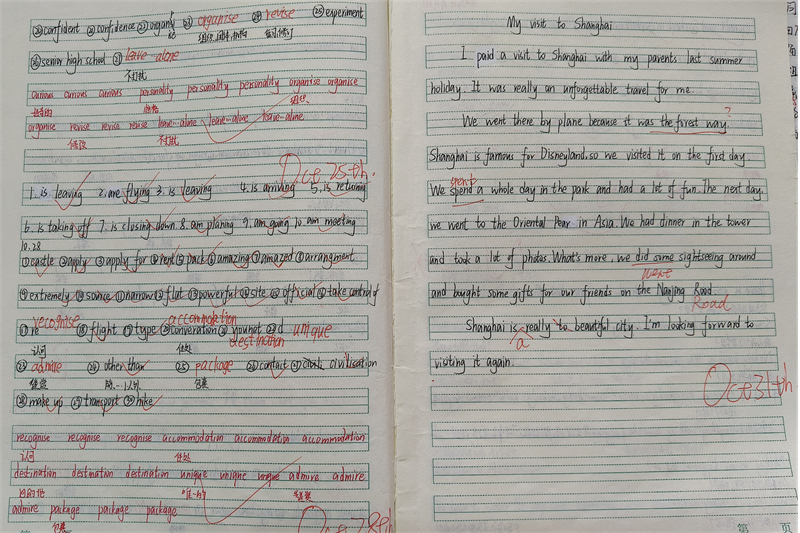 ㉑confident ㉒confidence ㉓organ ㉔ organise ㉔ revise ㉕experiment
组织
senior high school ㉗ leave-alone
不打扰
curious curious curious personality personality personality organise organise
性格 组织
organise revise revise revise leave-alone leave-alone leave-alone
修改 不打扰
Oct 25th.
1. is leaving 2. are flying 3. is leaving 4. is arriving 5. is returing
6. is taking off 7. is closing down. 8. am planing 9. am going 10. am meeting
10.28
①castle ②apply ③apply for ④rent ⑤pack ⑥amazing ⑦amazed ⑧arrangment
⑨extremely ⑩source ⑪narrow ⑫flat ⑬powerful ⑭site ⑮official ⑯take control of
recognise accommodation
⑰re ⑱flight ⑲type ⑳converation unique
destination
认识 住处
㉓admire ㉔other than ㉕ package ㉖contact civilisation
包裹
㉘make up ㉙transport ㉚hike
recognise recognise recognise accommodation accommodation accommodation
认识 住处
destination destination destination unique unique unique admire admire
目的地 唯一的
admire package package package
包裹
Oct 28th
My visit to Shanghai
I paid a visit to Shanghai with my parents last summer
holiday. It was really an unforgettable travel for me.
We went there by plane because it was the forest way. ?
Shanghai is famous for Disneyland, so we visited it on the first day.
spent
We spend a whole day in the park and had a lot of fun. The next day,
we went to the Oriental Pear in Asia. We had dinner in the tower
and took a lot of photos. What's more, we did some sightseeing around
went
and bought some gifts for our friends on the Nanjing Rood
Road
Shanghai is really to beautiful city. I'm looking forward to
a
visiting it again.
Oct 31th
第 页